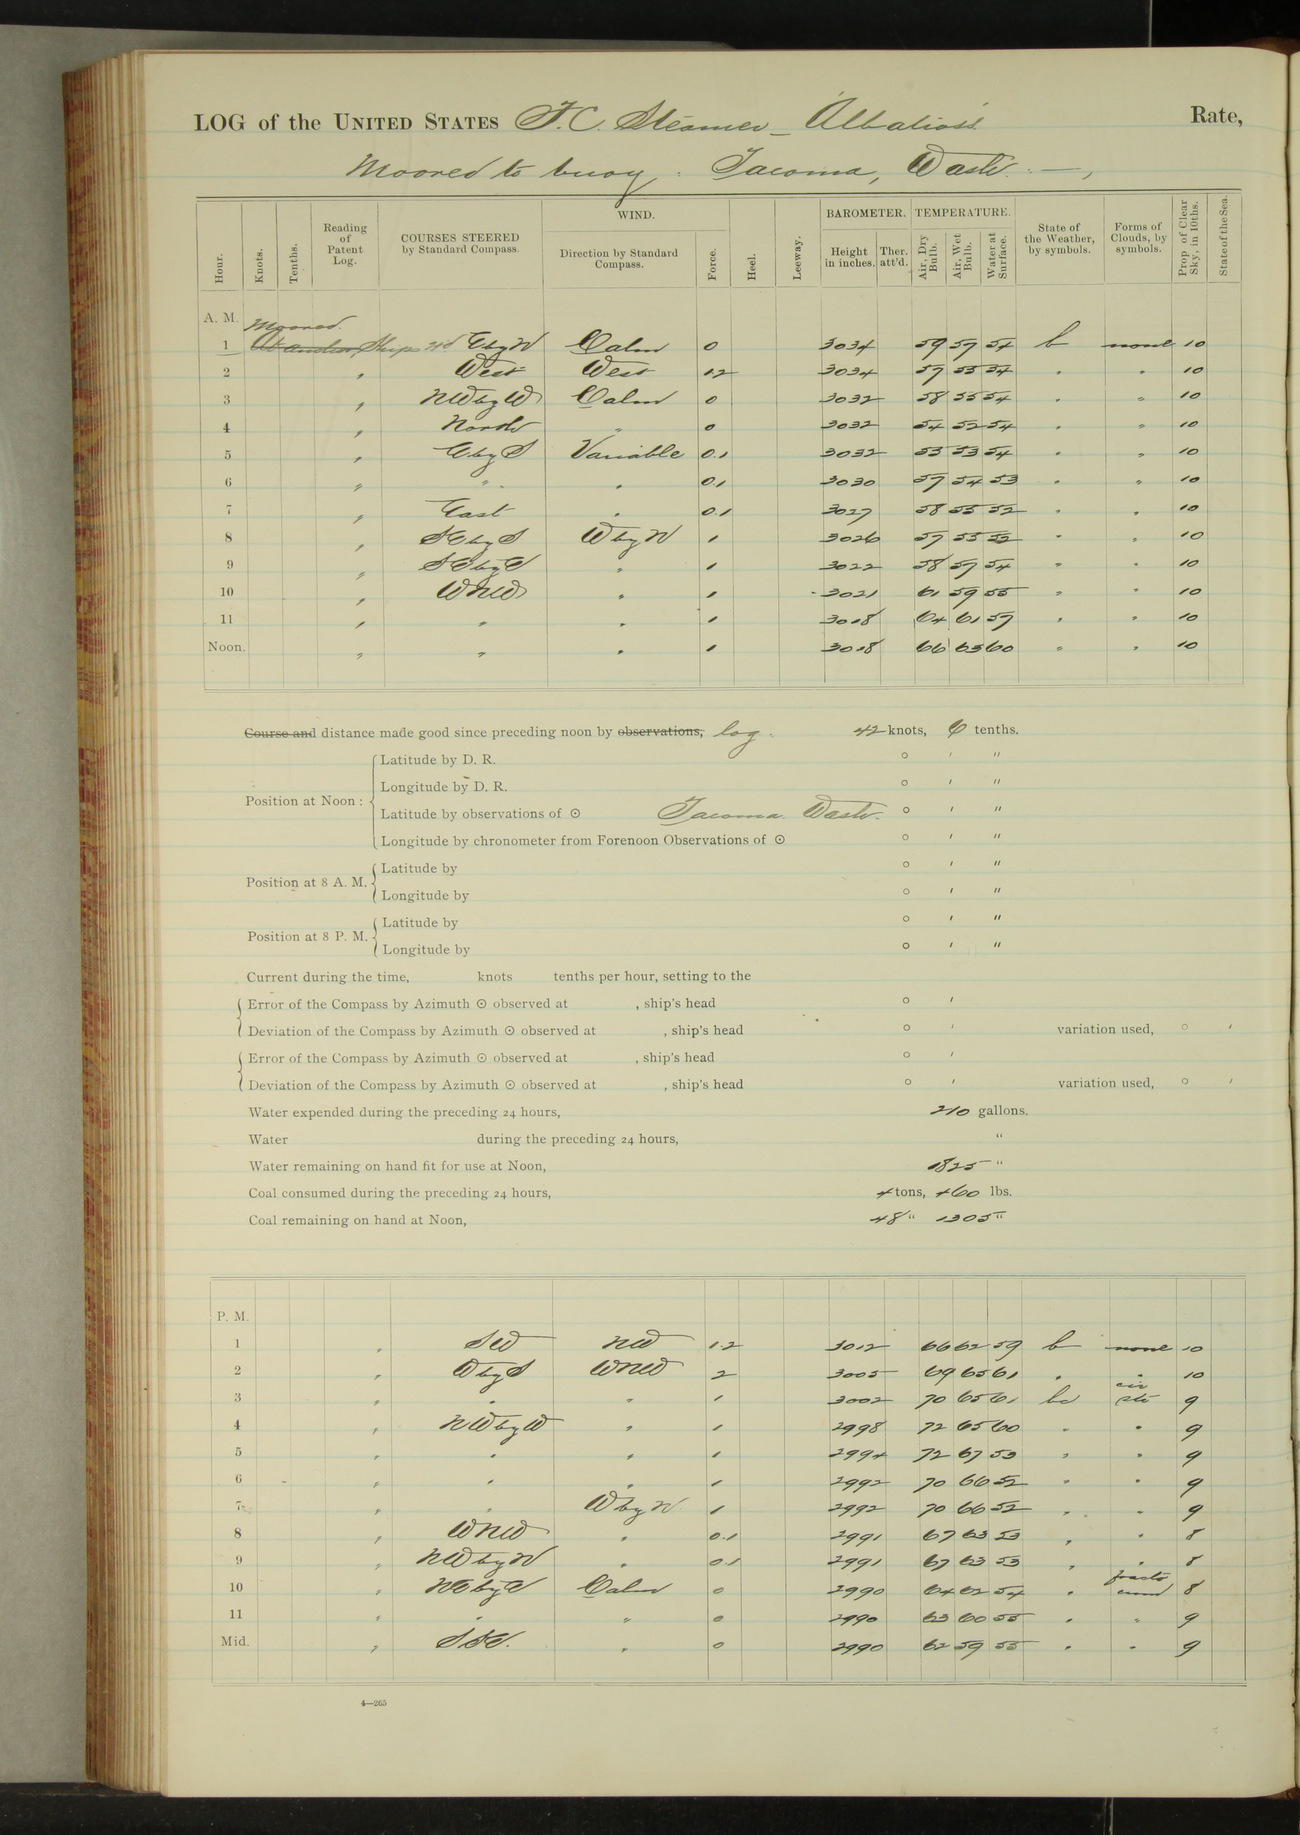 LOG of the UNITED STATES F.C. Steamer Albatross Rate,
Moored to buoy. Tacoma, Wash. —,
Hour. Knots. Tenths. Reading of Patent Log. COURSES STEERED by Standard Compass. WIND. Direction by Standard Compass. Force. Heel. Leeway. BAROMETER. Height in inches. Ther. att'd. TEMPERATURE. Air, Dry Bulb. Air, Wet Bulb. Water at Surface. State of the Weather, by symbols. Forms of Clouds, by symbols. Prop. of Clear Sky, in 10ths. State of the Sea.
A. M.
Moored.
1 At anchor, Ship's hd E by N Calm 0 3034 59 57 54 b none 10
2 " West West 1.2 3034 57 55 54 " " 10
3 " NW by W Calm 0 3032 58 55 54 " " 10
4 " North " 0 3032 54 52 54 " " 10
5 " E by S Variable 0.1 3032 53 53 54 " " 10
6 " " " 0.1 3030 57 54 53 " " 10
7 " East " 0.1 3027 58 55 52 " " 10
8 " SE by S W by N 1 3026 57 55 52 " " 10
9 " SE by E " 1 3022 58 57 54 " " 10
10 " WNW " 1 3021 61 59 55 " " 10
11 " " " 1 3018 64 61 57 " " 10
Noon. " " " 1 3018 66 63 60 " " 10
Course and distance made good since preceding noon by observations, log. 42 knots, 6 tenths.
Latitude by D. R. ° ′ ″
Longitude by D. R. ° ′ ″
Position at Noon :
Latitude by observations of ☉ Tacoma Wash. ° ′ ″
Longitude by chronometer from Forenoon Observations of ☉ ° ′ ″
Latitude by ° ′ ″
Position at 8 A. M.
Longitude by ° ′ ″
Latitude by ° ′ ″
Position at 8 P. M.
Longitude by ° ′ ″
Current during the time, knots tenths per hour, setting to the
Error of the Compass by Azimuth ☉ observed at , ship's head ° ′
Deviation of the Compass by Azimuth ☉ observed at , ship's head ° ′ variation used, ° ′
Error of the Compass by Azimuth ☉ observed at , ship's head ° ′
Deviation of the Compass by Azimuth ☉ observed at , ship's head ° ′ variation used, ° ′
Water expended during the preceding 24 hours, 210 gallons.
Water during the preceding 24 hours, "
Water remaining on hand fit for use at Noon, 1825 "
Coal consumed during the preceding 24 hours, 4 tons, 460 lbs.
Coal remaining on hand at Noon, 48 " 1305 "
P. M.
1 " SW NW 1.2 3012 66 62 59 b none 10
2 " W by S WNW 2 3005 69 65 61 " " 10
3 " " " 1 3002 70 65 61 bc cir str 9
4 " NW by W " 1 2998 72 65 60 " " 9
5 " " " 1 2994 72 67 53 " " 9
6 " " " 1 2992 70 66 52 " " 9
7 " " W by N. 1 2992 70 66 52 " " 9
8 " WNW " 0.1 2991 67 63 53 " 8
9 " NW by N " 0.1 2991 67 63 53 " " 8
10 " NE by E Calm 0 2990 64 62 54 " fracto cum 8
11 " " " 0 2990 63 60 55 " " 9
Mid. " SSE. " 0 2990 62 59 55 " " 9
4—265